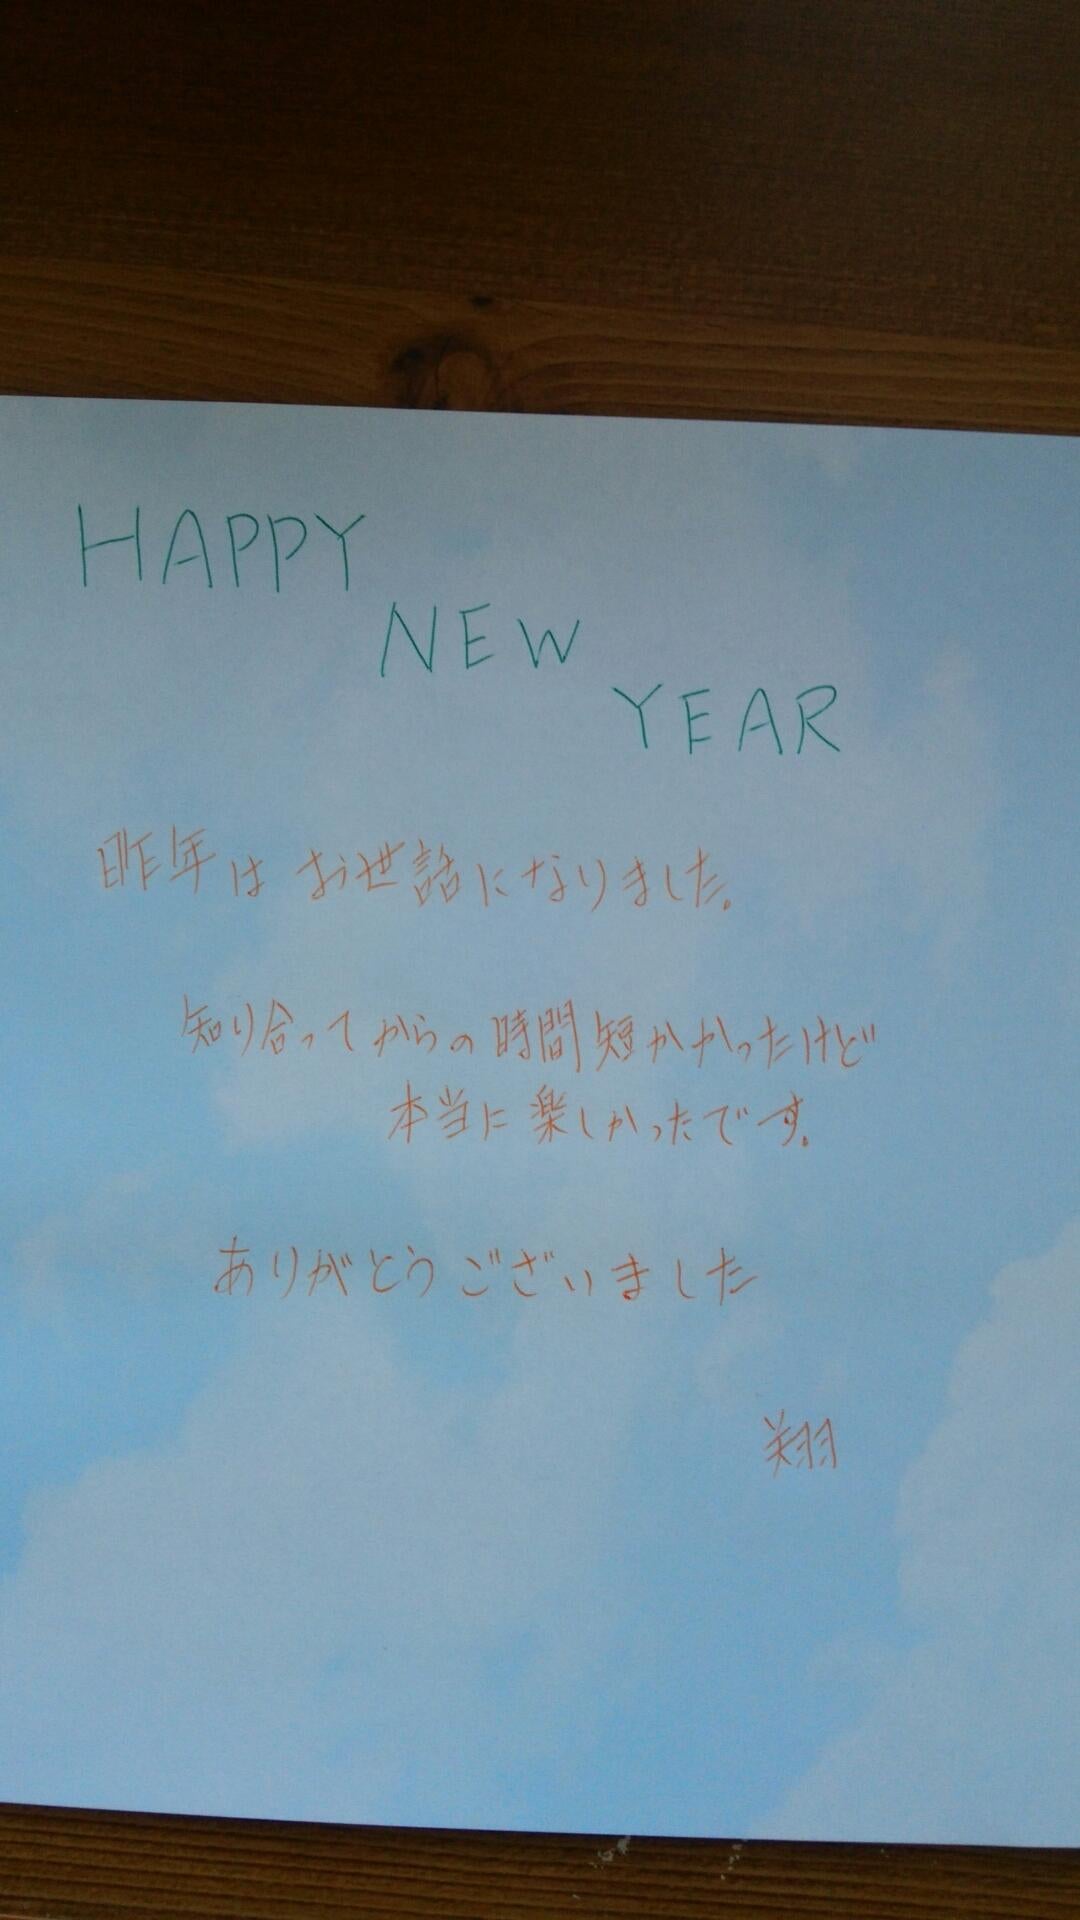 HAPPY
NEW
YEAR
昨年はお世話になりました。
知り合ってからの時間短かかったけど
本当に楽しかったです。
ありがとうございました
翔